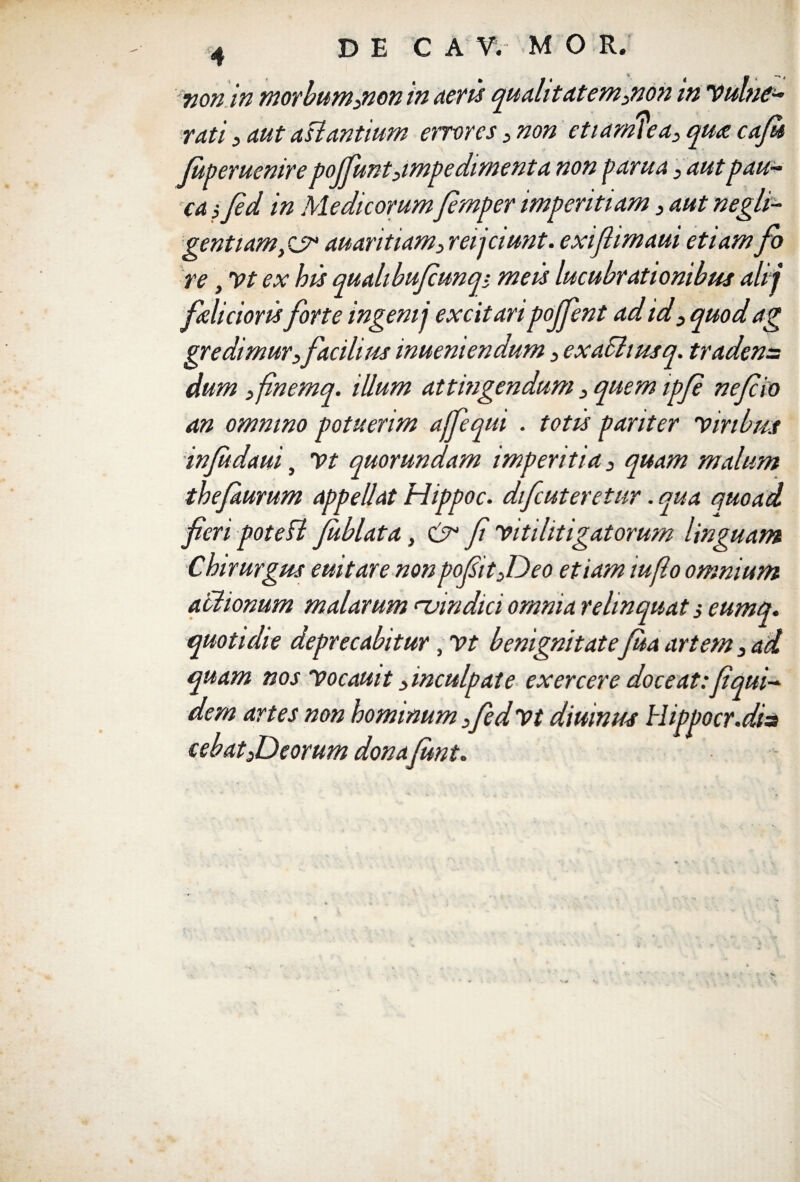 4 DE CAV. MOR.
non in morbum,non in aeris qualitatem,non in vulne-
rati, aut astantium errores, non etiam ĩ ea, quæ casu
superuenire possunt,impedimenta non parua, aut pau-
ca; sed in Medicorum semper imperitiam, aut negli-
gentiam,& auaritiam, reijciunt. existimaui etiam fo
re, vt ex his qualibuscunq; meis lucubrationibus alij
fælicioris forte ingenij excitari possent ad id, quod ag
gredimur, facilius inueniendum, exactiusq. traden=
dum, finemq. illum attingendum, quem ipse nescio
an omnino potuerim assequi. totis pariter viribus
insudaui, vt quorundam imperitia, quam malum
thesaurum appellat Hippoc. discuteretur. qua quoad
fieri potest sublata, & si vitilitigatorum linguam
Chirurgus euitare non possit,Deo etiam iusto omnium
actionum malarum vindici omnia relinquat; eumq.
quotidie deprecabitur, vt benignitate sua artem, ad
quam nos vocauit, inculpate exercere doceat: siqui-
dem artes non hominum, sed vt diuinus Hippocr.di=
cebat,Deorum dona sunt.